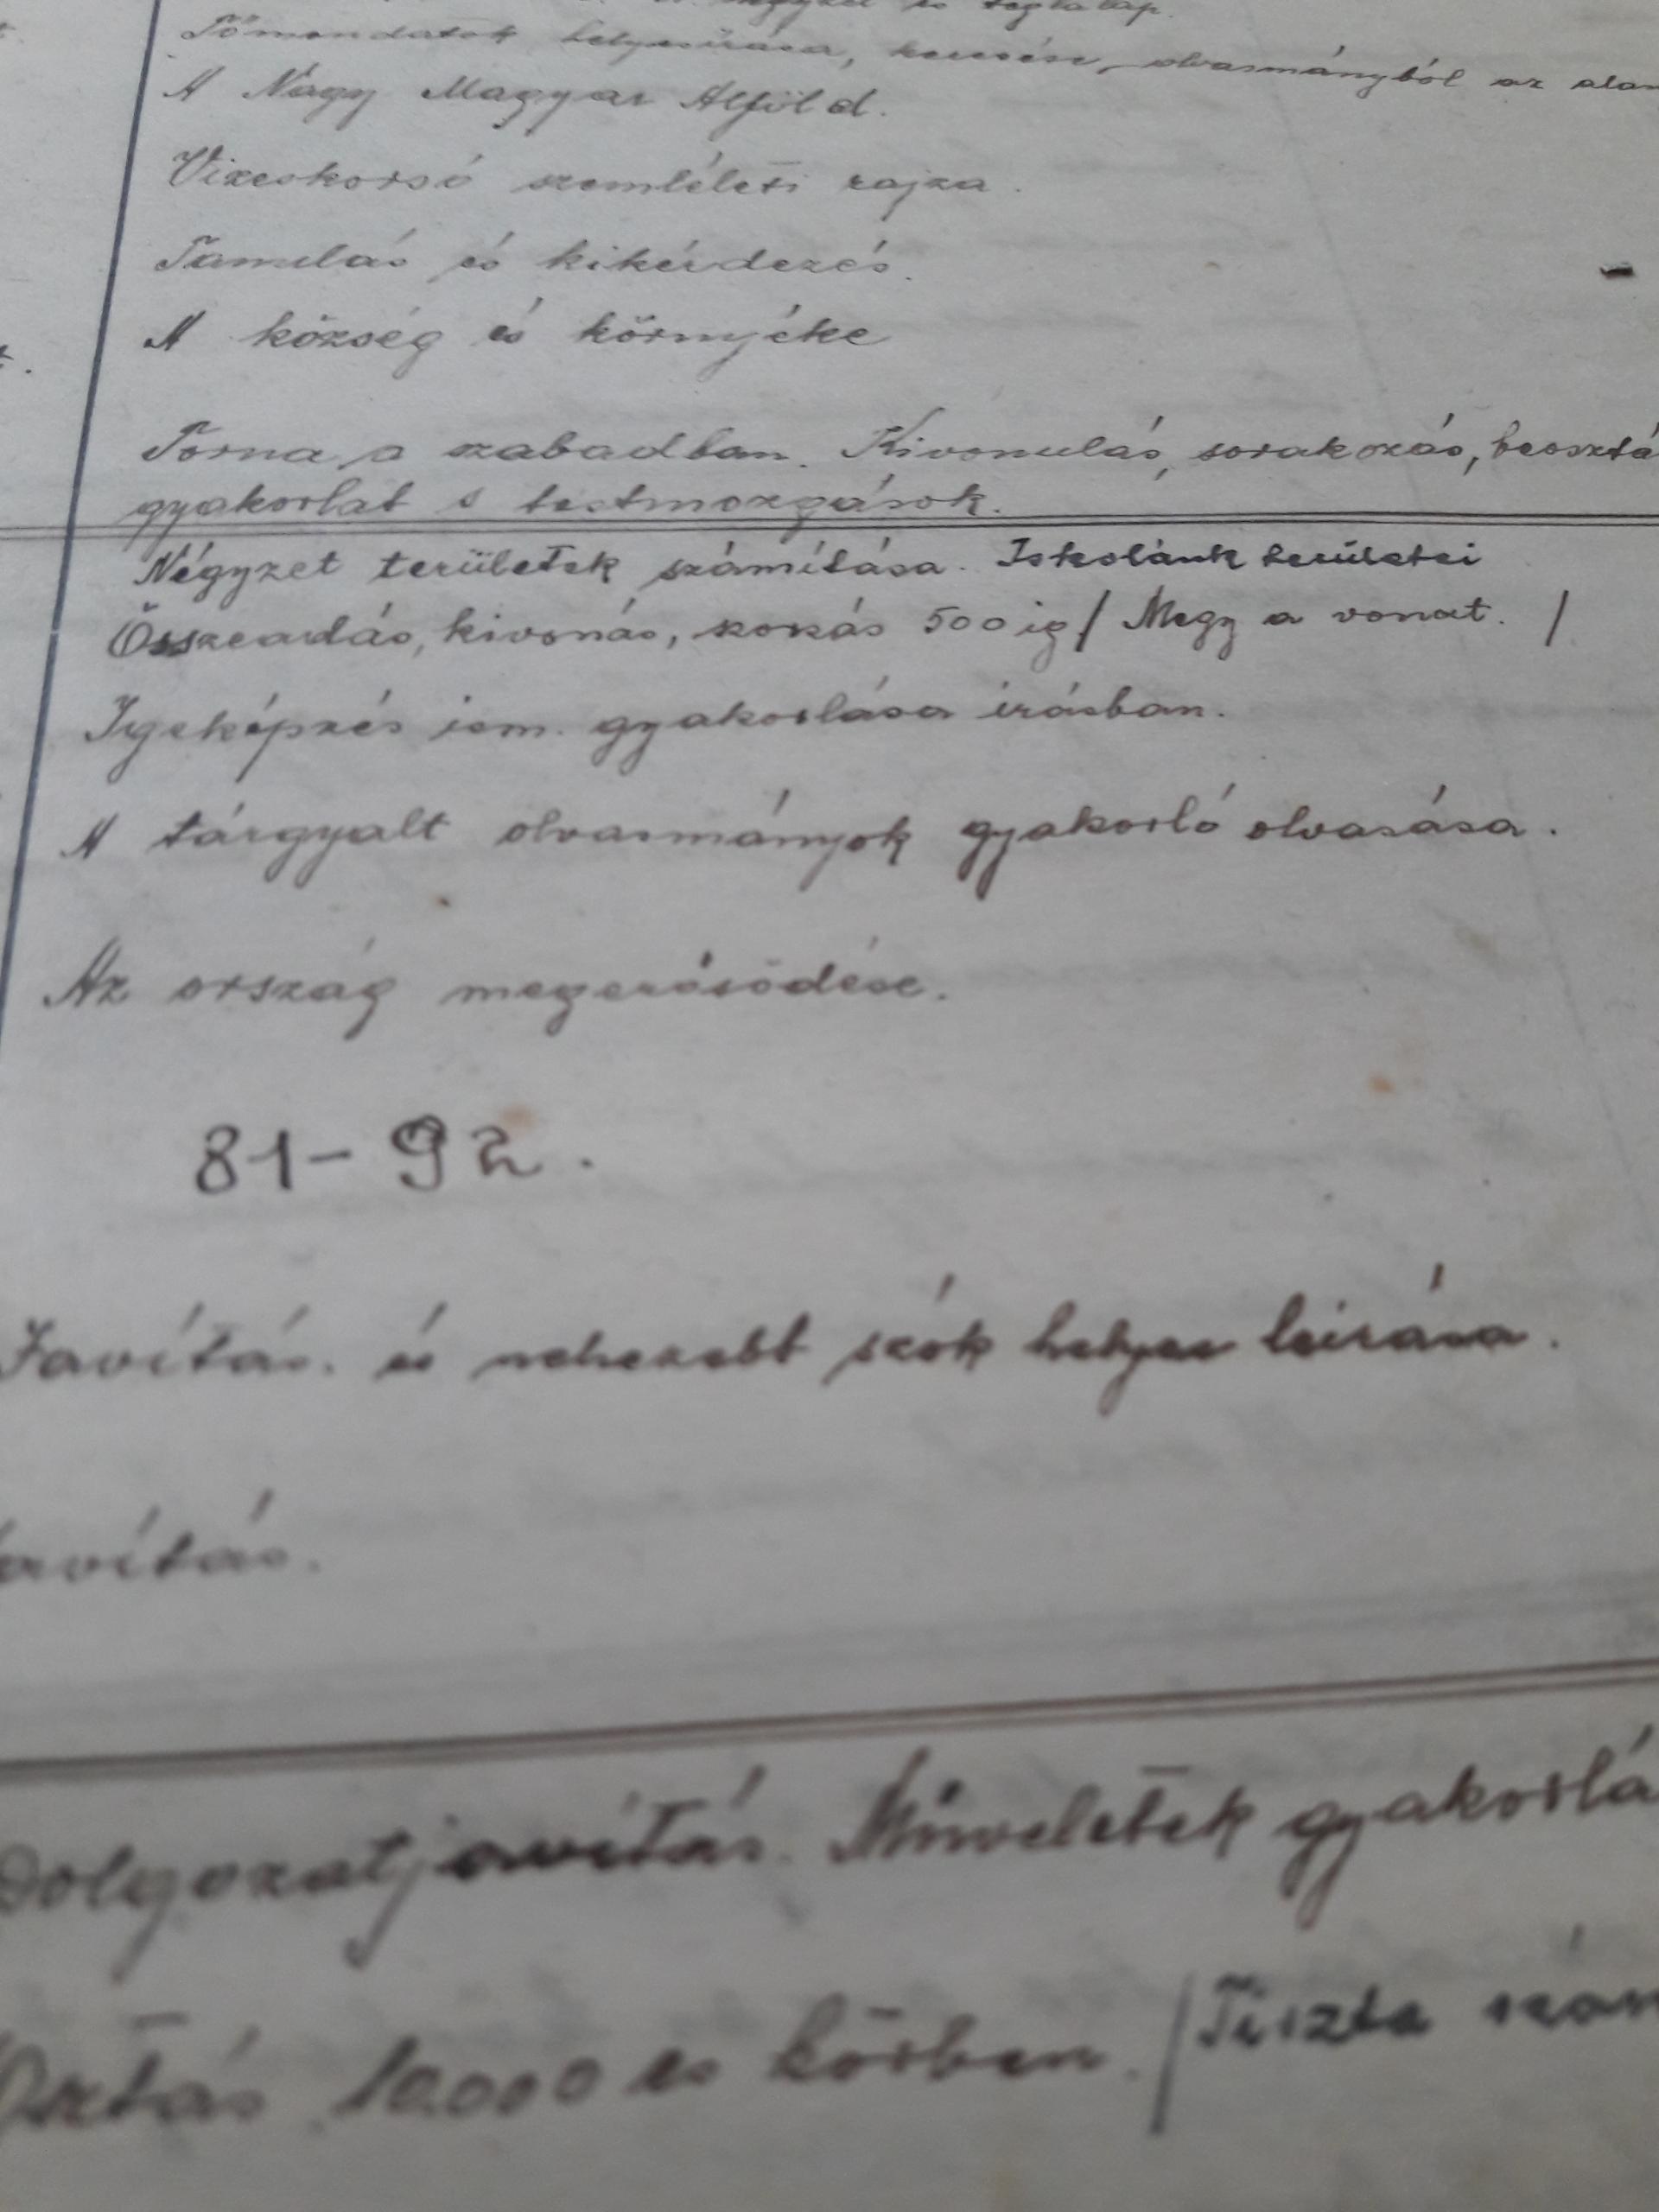 négyzet és téglalap.
Tőmondatok helyesírása, keresése, olvasmányból az alan
A Nagy Magyar Alföld.
Vizeskorsó szemléleti rajza.
Tanulás és kikérdezés.
A község és környéke
Torna a szabadban. Kivonulás, sorakozás, beosztá
gyakorlat s testmozgások.
Négyzet területek számítása. Iskolánk területei
Összeadás, kivonás, szorzás 500 ig / Megy a vonat. /
Igeképzés ism. gyakorlása írásban.
A tárgyalt olvasmányok gyakorló olvasása.
Az ország megerősödése.
81-92.
Javítás. és nehezebb szók helyes leírása.
avítás.
Dolgozatjavítás. Műveletek gyakorlá
Osztás 10.000 es körben. / Tiszta szám